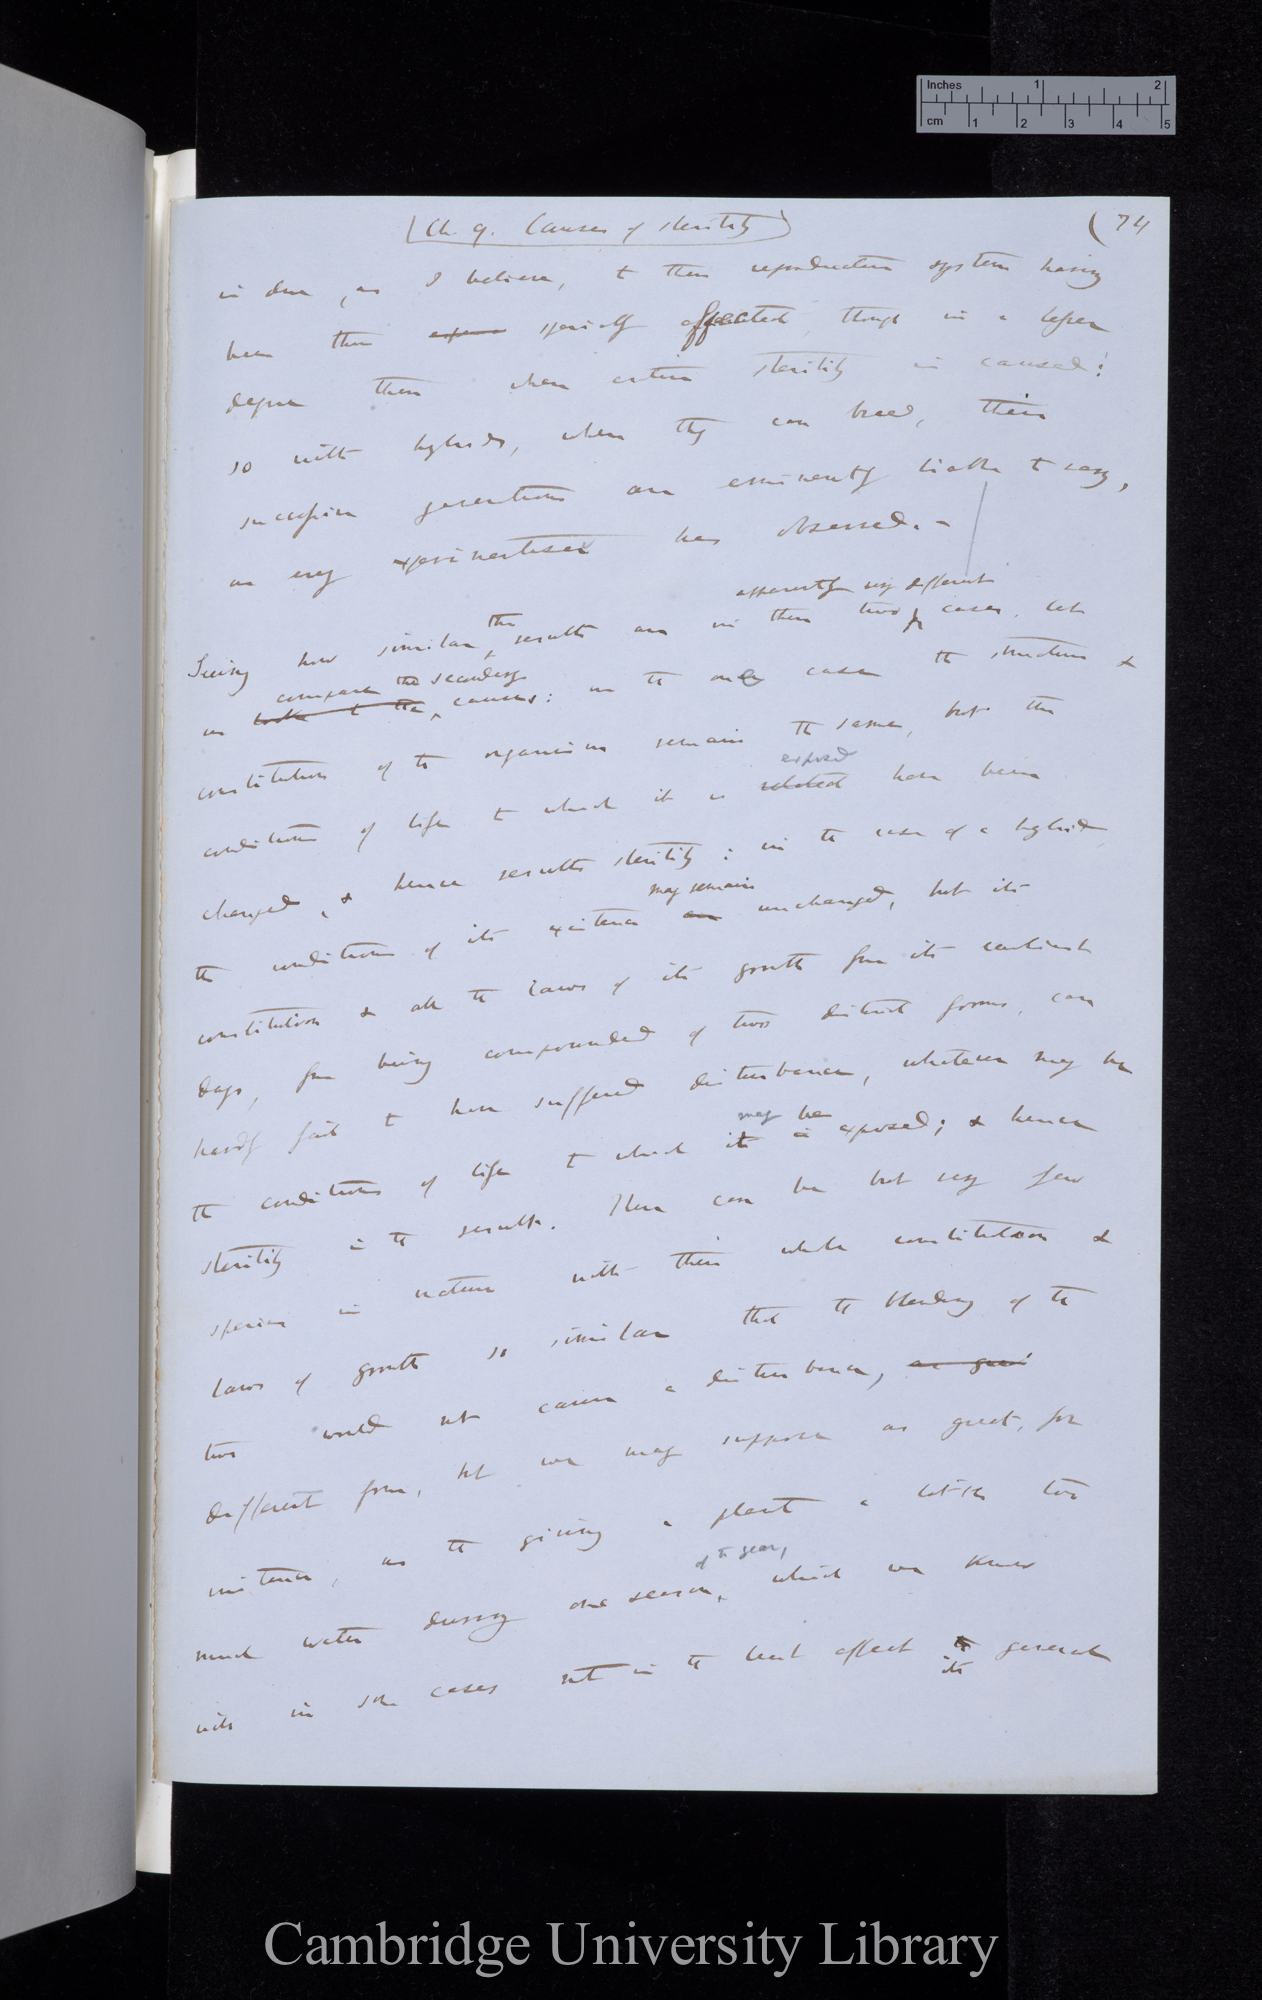 Inches 1 2
cm 1 2 3 4 5
Ch. 9. Causes of sterility
(74
is due, as I believe, to their reproductive system having
been then ~~~~ specially affected, though in a lesser
degree than when entire sterility is caused:
so with hybrids, when they can breed, their
successive generations are eminently liable to vary,
as every experimentiser has observed. —
apparently very different
Seeing how similar the results are in these two cases, let
compare the secondary
us looke to the causes: in the one case the structure &
constitution of the organism remain the same, but the
exposed
conditions of life to which it is related have been
changed, & hence results sterility: in the case of a hybrid,
may remain
the conditions of its existence are unchanged, but its
constitution & all the laws of its growth from its earliest
days, from being compounded of two distinct forms, can
hardly fail to have suffered disturbance, whatever may be
may be
the conditions of life to which it is exposed; & hence
sterility is the result. There can be but very few
species in nature with their whole constitution &
laws of growth so similar that the blending of the
two would not cause a disturbance, as great
different from, but we may suppose as great, for
instance, as the giving a plant a little too
of the year,
much water during one season, which we know
will in some cases not in the least affect the general
its
Cambridge University Library